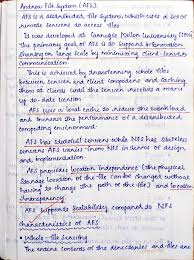 Andrew File System (AFS)
AFS is a distributed file system, which uses a set of
remote servers to access files
It was developed at Carnegie Mellon University (CMU)
The primary goal of AFS is to support information
sharing on large scale by minimizing client-server
communication
This is achieved by transferring whole files
between server and client computers and caching
them at clients until the server receives a more
up-to-date version
AFS uses a local cache to reduce the workload
and increase the performance of a distributed
computing environment
AFS has stateful servers while NFS has stateless
servers AFS varies from NFS in terms of design
and implementation
AFS provides location independence (the physical
storage location of the file can be changed without
having to change the path of the file) and location
transparency
AFS supports scalability compared to NFS
Characteristics of AFS
Whole-file serving
The entire contents of the directories and files are